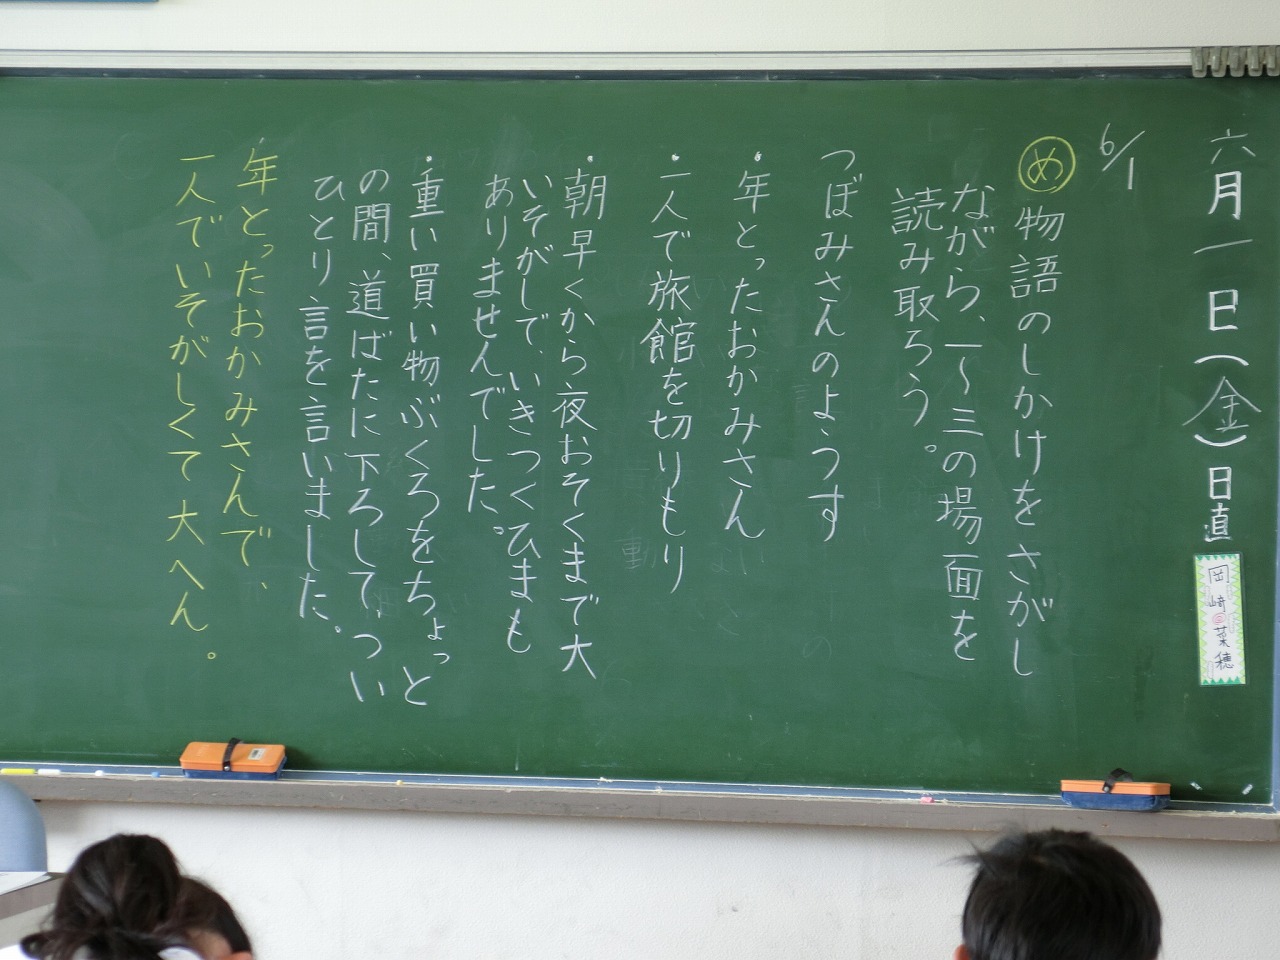 六月一日(金)日直
岡崎菜穂
6/1
め 物語のしかけをさがし
ながら、一〜三の場面を
読み取ろう。
つぼみさんのようす
・年とったおかみさん
・一人で旅館を切りもり
・朝早くから夜おそくまで大
いそがしで、いきつくひまも
ありませんでした。
・重い買い物ぶくろをちょっと
の間、道ばたに下ろして、つい
ひとり言を言いました。
年とったおかみさんで、
一人でいそがしくて大へん。